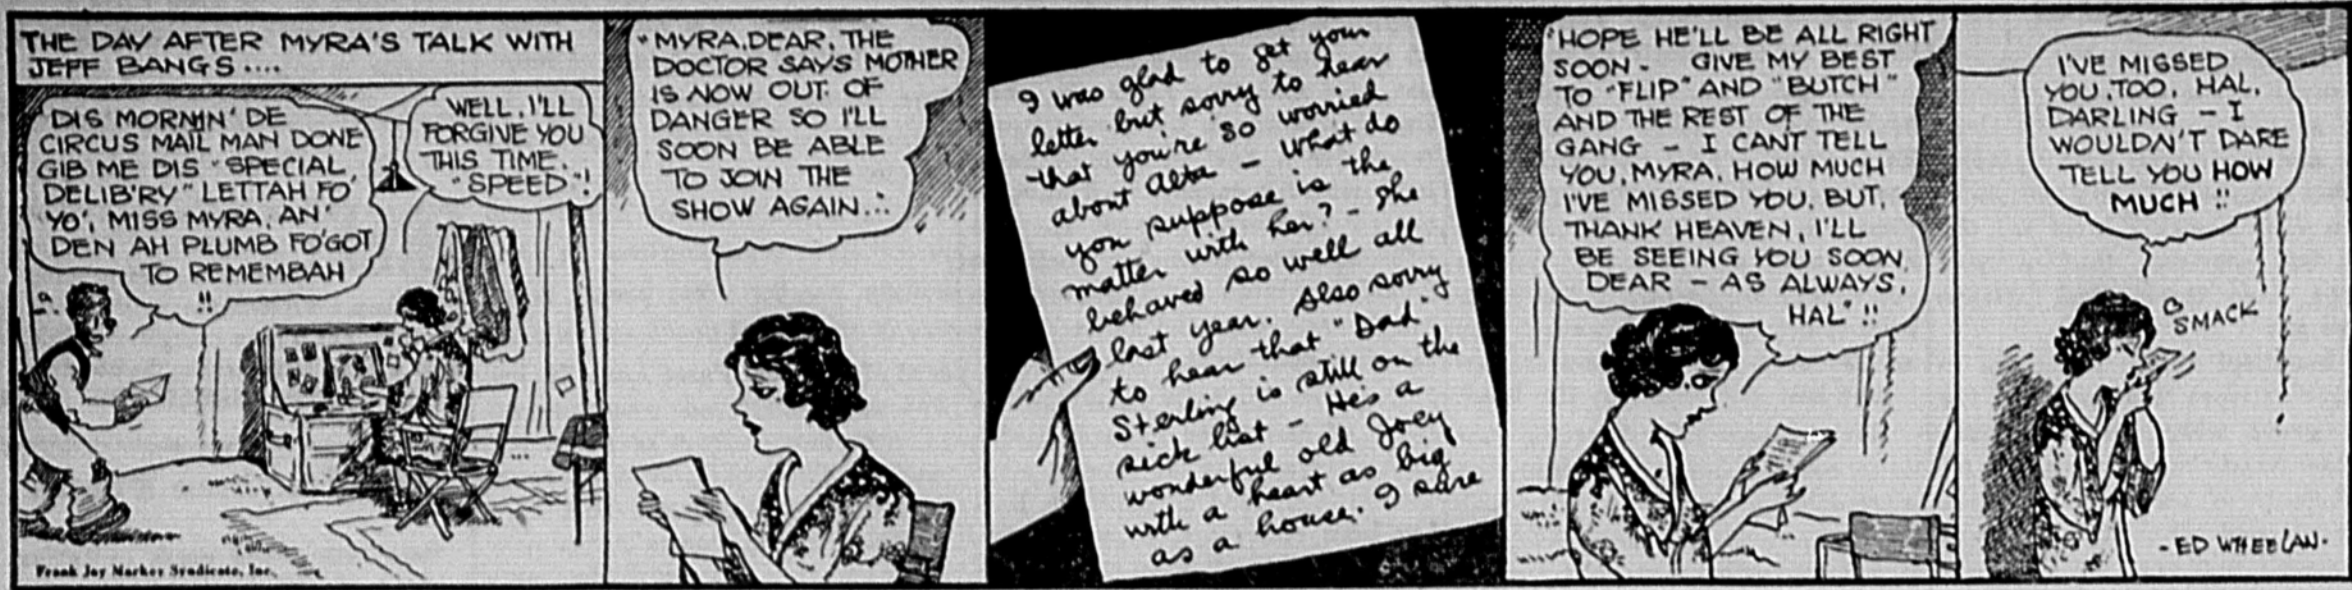 THE DAY AFTER MYRA'S TALK WITH
JEFF BANGS....
"DIS MORNIN' DE
CIRCUS MAIL MAN DONE
GIB ME DIS "SPECIAL
DELIB'RY" LETTAH FO'
YO', MISS MYRA, AN'
DEN AH PLUMB FO'GOT
TO REMEMBAH
!!
WELL, I'LL
FORGIVE YOU
THIS TIME,
"SPEED"!
Frank Jay Markey Syndicate, Inc.
"MYRA, DEAR, THE
DOCTOR SAYS MOTHER
IS NOW OUT OF
DANGER SO I'LL
SOON BE ABLE
TO JOIN THE
SHOW AGAIN...
I was glad to get your
letter but sorry to hear
that you're so worried
about Alta — What do
you suppose is the
matter with her? — She
behaved so well all
last year. Also sorry
to hear that "Dad"
Sterling is still on the
sick list — He's a
wonderful old Joey
with a heart as big
as a house. I sure
"HOPE HE'LL BE ALL RIGHT
SOON - GIVE MY BEST
TO "FLIP" AND "BUTCH"
AND THE REST OF THE
GANG — I CAN'T TELL
YOU, MYRA, HOW MUCH
I'VE MISSED YOU, BUT,
THANK HEAVEN, I'LL
BE SEEING YOU SOON,
DEAR — AS ALWAYS,
HAL" !!
I'VE MISSED
YOU, TOO, HAL,
DARLING — I
WOULDN'T DARE
TELL YOU HOW
MUCH !!
SMACK
-ED WHEELAN-